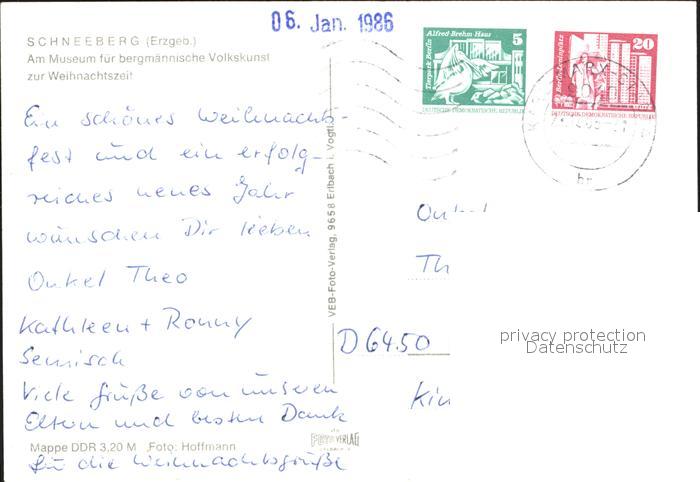 06. Jan. 1986
SCHNEEBERG (Erzgeb.)
Am Museum für bergmännische Volkskunst
zur Weihnachtszeit
Ein schönes Weihnachts-
fest und ein erfolg-
reiches neues Jahr
wünschen Dir lieben
Onkel Theo
Kathleen + Ronny
Semisch
Viele Grüße von unseren
Eltern und besten Dank
für die Weihnachtsgrüße
Mappe DDR 3,20 M Foto: Hoffmann
VEB-Foto-Verlag, 9658 Erlbach i. Vogtl.
FOTO VERLAG
Alfred-Brehm Haus
5
Tierpark Berlin
DEUTSCHE DEMOKRATISCHE REPUBLIK
20
Berlin-Leninplatz
DEUTSCHE DEMOKRATISCHE REPUBLIK
br
Onkel
Th
D6450
privacy protection
Datenschutz